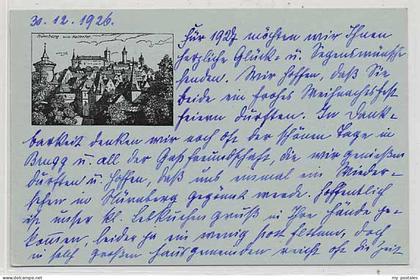 30.12.1926.
Nürnberg
Für 1927 möchten wir Ihnen
herzliche Glück- u. Segenswünsche
senden. Wir hoffen, daß Sie
beide ein frohes Weihnachtsfest
feiern durften. In Dank-
barkeit denken wir noch oft der schönen Tage in
Brugg u. all der Gastfreundschaft, die wir genießen
durften u. hoffen, daß uns einmal ein Wieder-
sehen in Nürnberg gegönnt werde. Hoffentlich
ist unser kl. Lebkuchengruß in Ihre Hände ge-
kommen, leider ja ein wenig doch
in solch großen Hausgemeinden reicht oft die Zeit